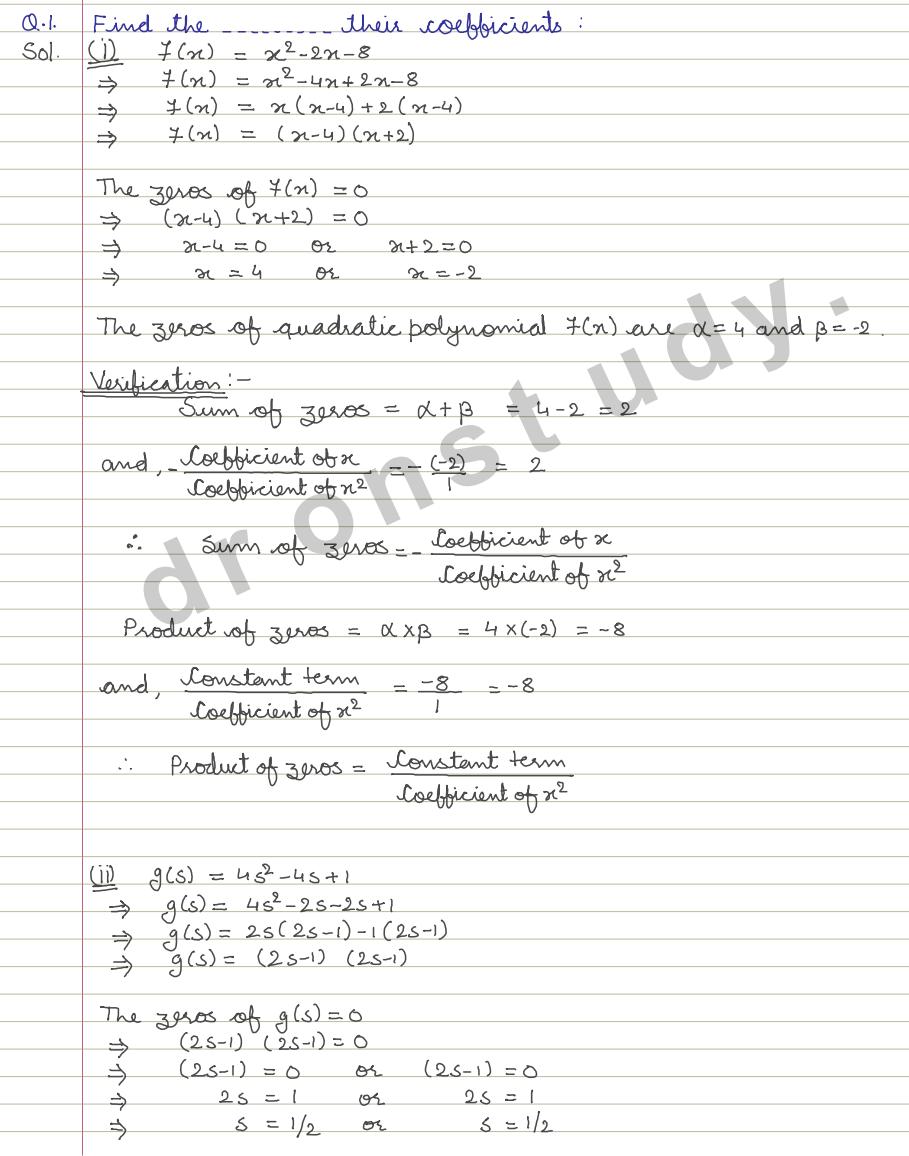 Q.1. Find the ......... their coefficients :
Sol. (i) f(x) = x²-2x-8
⇒ f(x) = x²-4x+2x-8
⇒ f(x) = x(x-4)+2(x-4)
⇒ f(x) = (x-4)(x+2)
The zeros of f(x) = 0
⇒ (x-4) (x+2) = 0
⇒ x-4 = 0 or x+2 = 0
⇒ x = 4 or x = -2
The zeros of quadratic polynomial f(x) are α = 4 and β = -2.
Verification :-
Sum of zeros = α+β = 4-2 = 2
and, - Coefficient of x / Coefficient of x² = - (-2)/1 = 2
∴ Sum of zeros = - Coefficient of x / Coefficient of x²
Product of zeros = α×β = 4×(-2) = -8
and, Constant term / Coefficient of x² = -8/1 = -8
∴ Product of zeros = Constant term / Coefficient of x²
(ii) g(s) = 4s²-4s+1
⇒ g(s) = 4s²-2s-2s+1
⇒ g(s) = 2s(2s-1)-1(2s-1)
⇒ g(s) = (2s-1) (2s-1)
The zeros of g(s) = 0
⇒ (2s-1) (2s-1) = 0
⇒ (2s-1) = 0 or (2s-1) = 0
⇒ 2s = 1 or 2s = 1
⇒ s = 1/2 or s = 1/2
dronstudy.